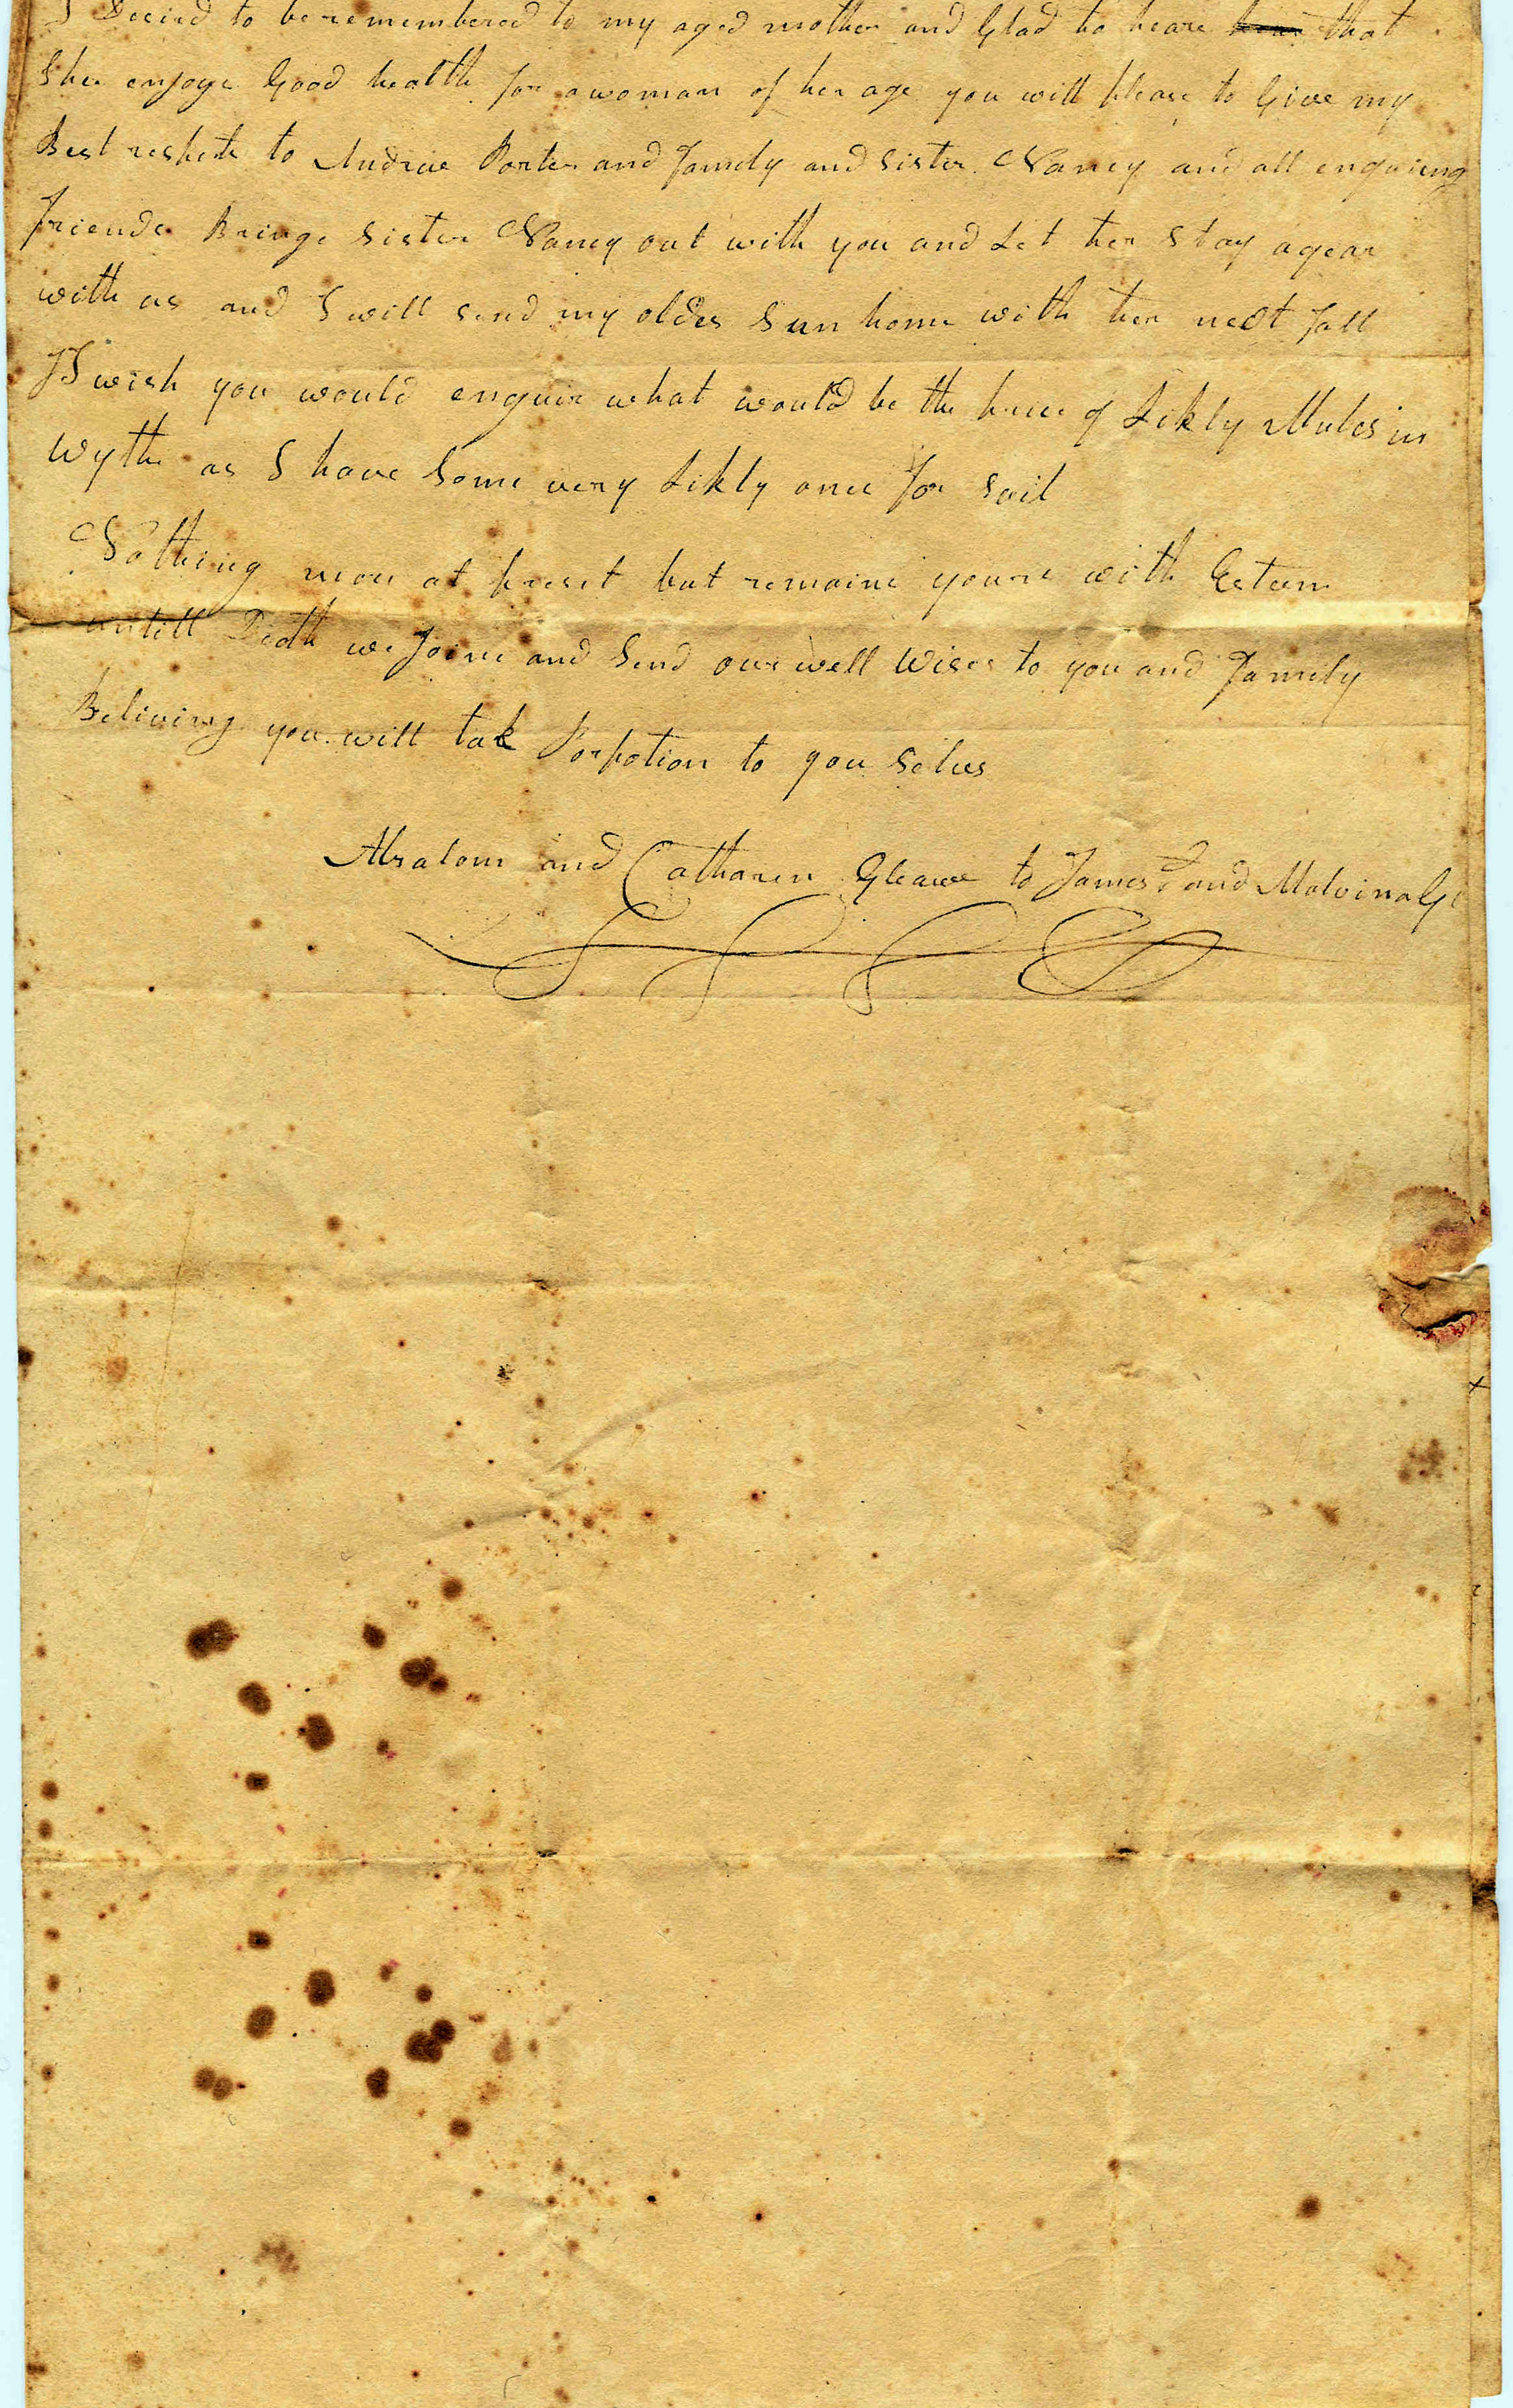 I Decird to be remembered to my aged mother and Glad to heare that
She enjoye Good health for a woman of her age you will please to Give my
Best respects to Andrue Porter and family and Sister Nancy and all enquiring
friends Bringe Sister Nancy out with you and Let her Stay a year
with us and I will send my oldes Sun home with her next fall
I wish you would enquire what would be the price of Likly Mules in
Wythe as I have Some very Likly ones for sail
Nothing more at presit but remains yours with Esteem
untill Death we Joine and Send our well Wises to you and family
Beliving you will tak Porpotion to you Selves
Absalom and Catharen Gleave to James and Malvina Gl